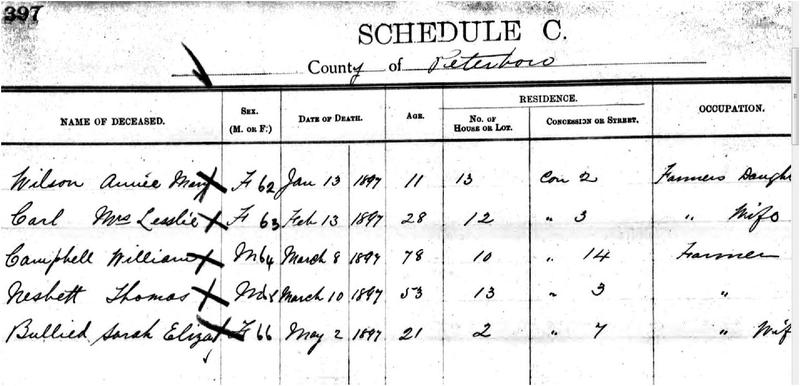 397
SCHEDULE C.
County of Peterboro
NAME OF DECEASED. SEX. (M. OR F.) DATE OF DEATH. AGE. RESIDENCE. NO. OF HOUSE OR LOT. CONCESSION OR STREET. OCCUPATION.
Wilson Annie Mary F 62 Jan 13 1897 11 13 Con 2 Farmers Daugh
Carl Mrs Lesslie F 63 Feb 13 1897 28 12 " 3 " Wife
Campbell William M 64 March 8 1897 78 10 " 14 Farmer
Nesbett Thomas M 65 March 10 1897 53 13 " 3 "
Bullied Sarah Elizat F 66 May 2 1897 21 2 " 7 " Wif